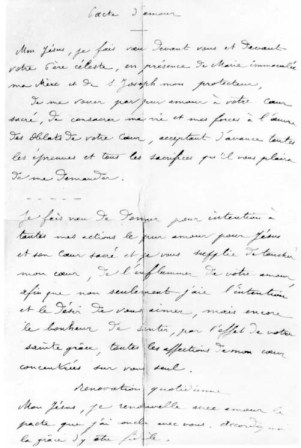 Pacte d'amour
Mon Jésus, je fais vœu devant vous et devant
votre Père céleste, en présence de Marie immaculée
ma Mère et de St Joseph mon protecteur,
de me vouer par pur amour à votre cœur
sacré, de consacrer ma vie et mes forces à l'œuvre
des Oblats de votre Cœur, acceptant d'avance toutes
les épreuves et tous les sacrifices qu'il vous plaira
de me demander.
Je fais vœu de donner pour intention à
toutes mes actions le pur amour pour Jésus
et son Cœur sacré et je vous supplie de toucher
mon cœur, de l'enflammer de votre amour
afin que non seulement j'aie l'intention
et le désir de vous aimer, mais encore
le bonheur de sentir, par l'effet de votre
sainte grâce, toutes les affections de mon cœur
concentrées sur vous seul.
Rénovation quotidienne
Mon Jésus, je renouvelle avec amour le
pacte que j'ai conclu avec vous. Accordez-moi
la grâce d'y être fidèle.